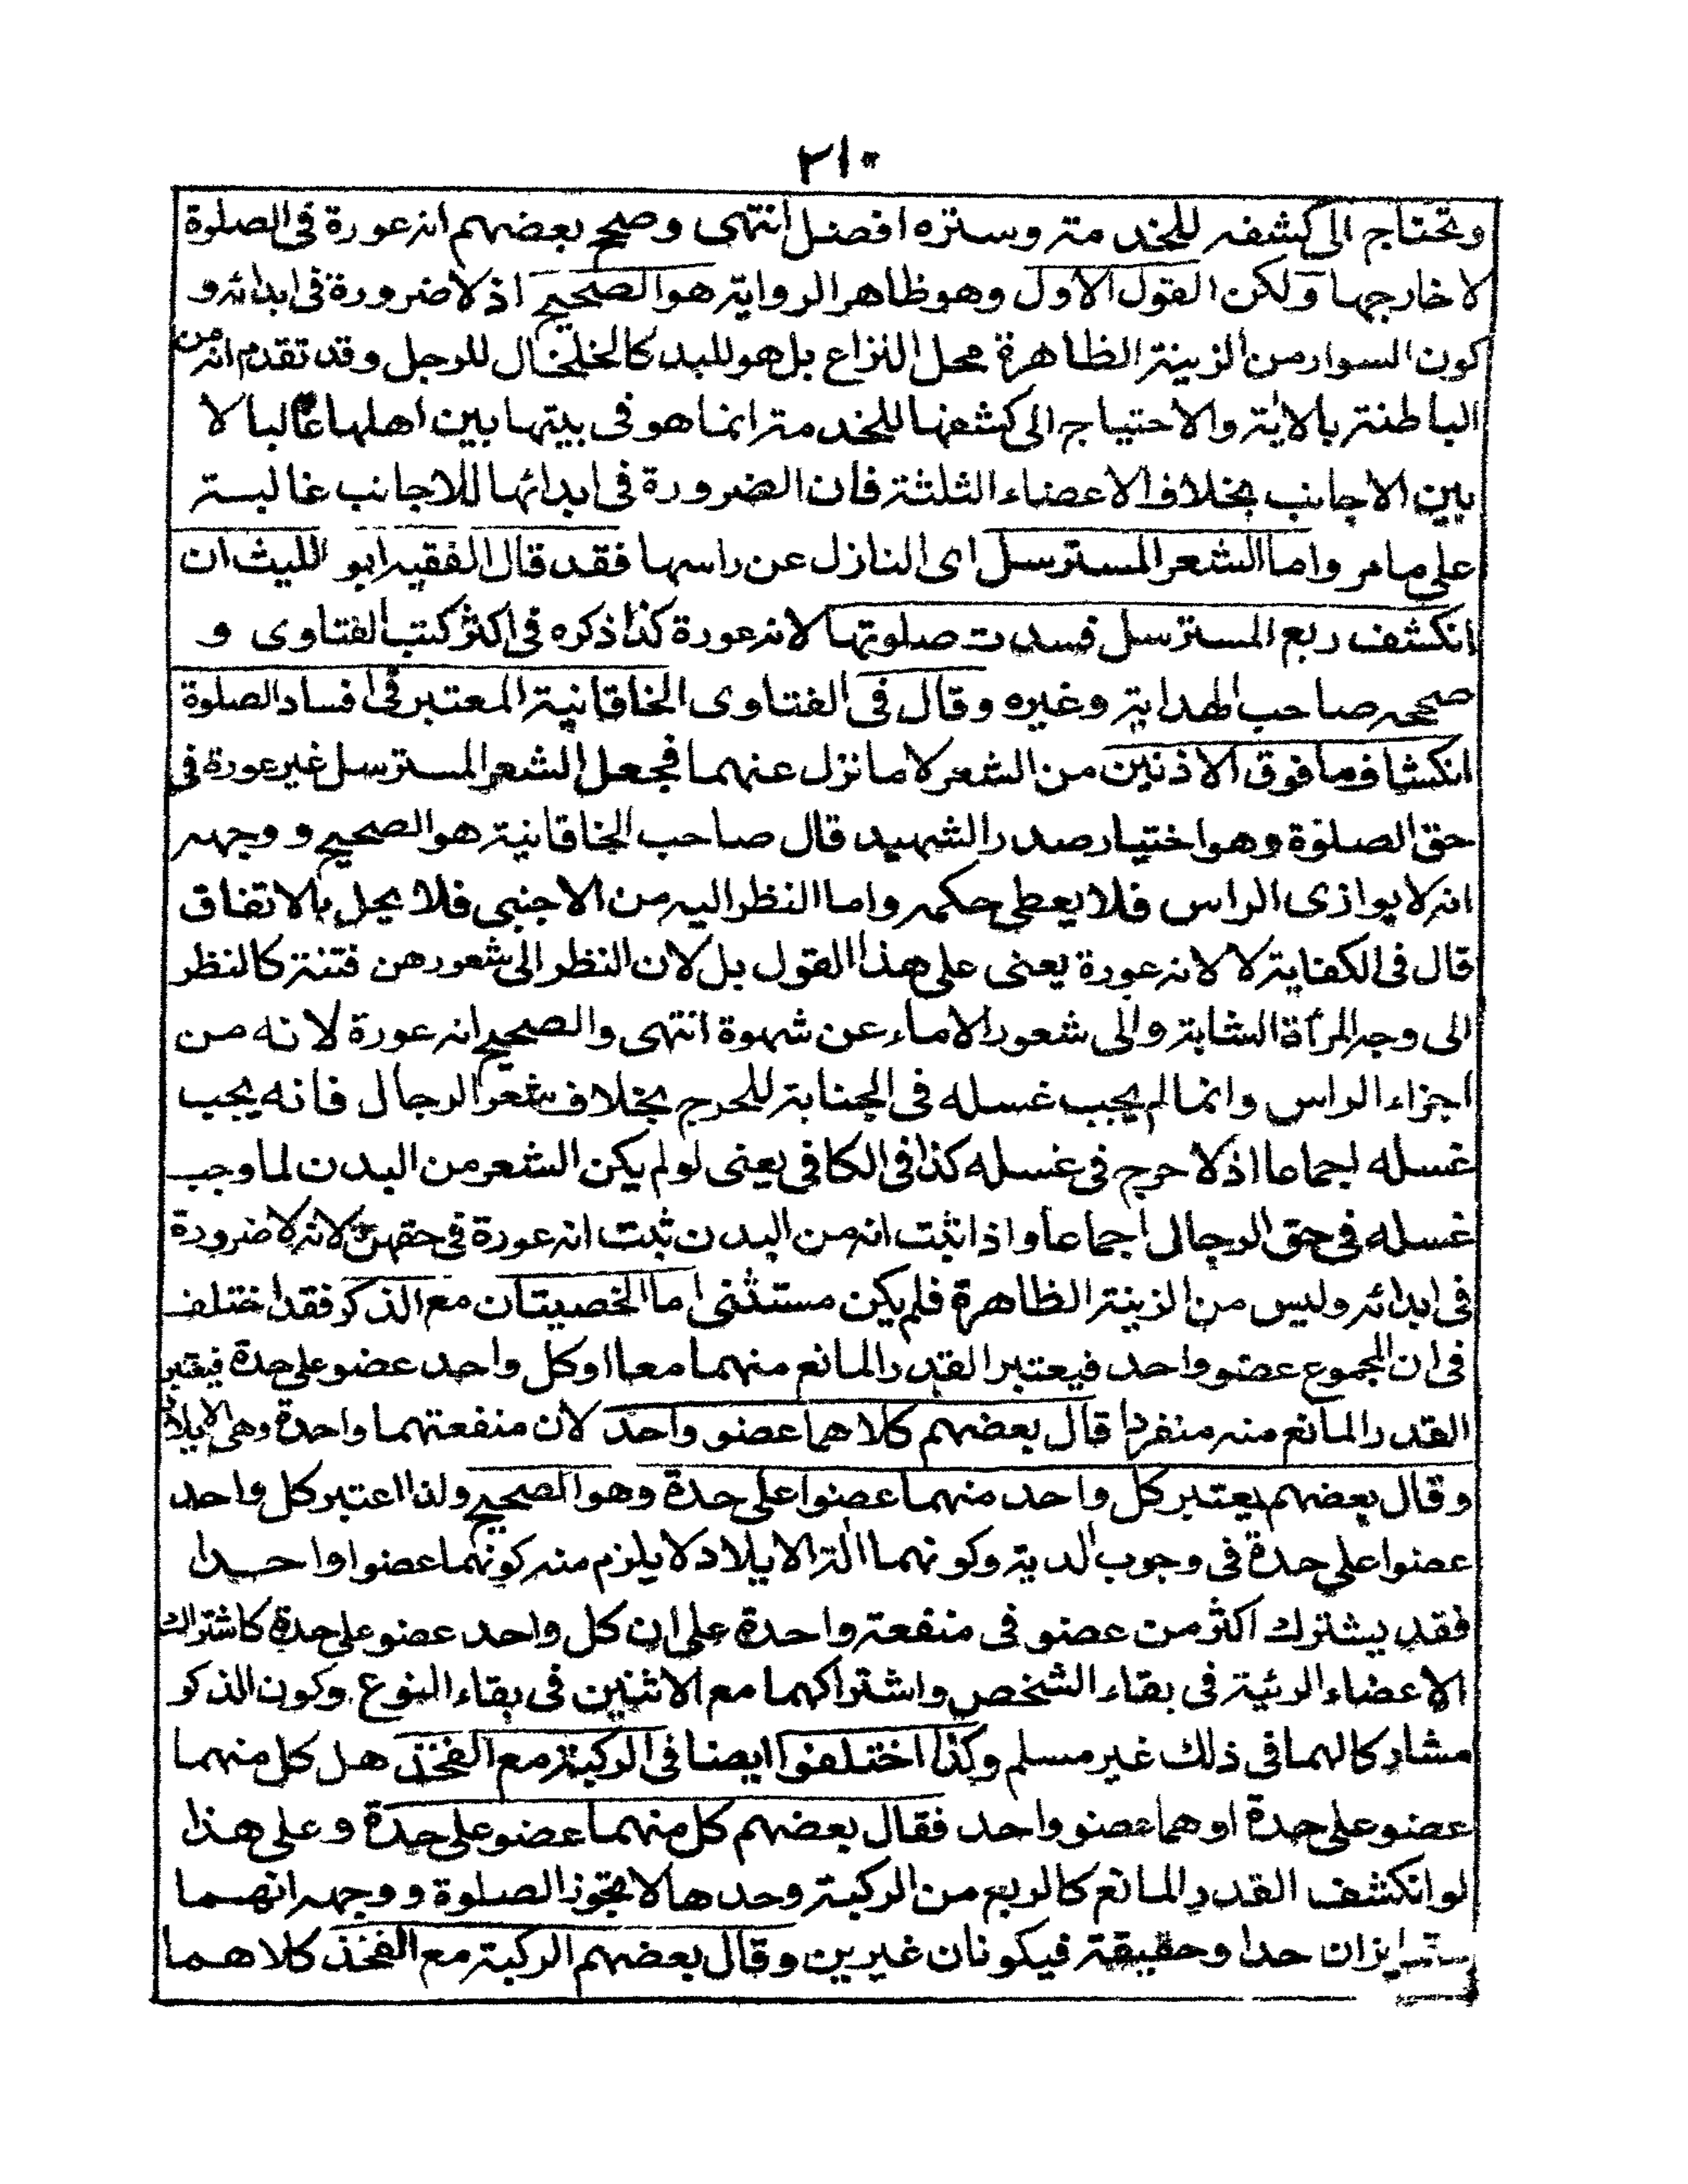 ٢١٠
وتحتاج الى كشفه للخدمة وستره افضل انتهى وصحح بعضهم انه عورة فى الصلوة
لا خارجها ولكن القول الاول وهو ظاهر الرواية هو الصحيح اذ لا ضرورة فى ابدائه و
كون السوار من الزينة الظاهرة محل النزاع بل هو لليد كالخلخال للرجل وقد تقدم انه من
الباطنة بالاية والاحتياج الى كشفها للخدمة انما هو فى بيتها بين اهلها غالبا لا
بين الاجانب بخلاف الاعضاء الثلثة فان الضرورة فى ابدائها للاجانب غالبة
على ما مر واما الشعر المسترسل اى النازل عن راسها فقد قال الفقيه ابو الليث ان
انكشف ربع المسترسل فسدت صلوتها لانه عورة كذا ذكره فى اكثر كتب الفتاوى و
صححه صاحب الهداية وغيره وقال فى الفتاوى الخاقانية المعتبر فى افساد الصلوة
انكشاف ما فوق الاذنين من الشعر لا ما نزل عنهما فجعل الشعر المسترسل غير عورة فى
حق الصلوة وهو اختيار صدر الشهيد قال صاحب الخاقانية هو الصحيح ووجهه
انه لا يوازى الراس فلا يعطى حكمه واما النظر اليه من الاجنبى فلا يحل بالاتفاق
قال فى الكفاية لا لانه عورة يعنى على هذا القول بل لان النظر الى شعورهن فتنة كالنظر
الى وجه المرأة الشابة والى شعور الاماء عن شهوة انتهى والصحيح انه عورة لانه من
اجزاء الراس وانما لم يجب غسله فى الجنابة للحرج بخلاف شعر الرجال فانه يجب
غسله اجماعا اذ لا حرج فى غسله كذا فى الكافى يعنى لو لم يكن الشعر من البدن لما وجب
غسله فى حق الرجال اجماعا واذا ثبت انه من البدن ثبت انه عورة فى حقهن لانه لا ضرورة
فى ابدائه وليس من الزينة الظاهرة فلم يكن مستثنى اما الخصيتان مع الذكر فقد اختلف
فى ان المجموع عضو واحد فيعتبر القدر المانع منهما معا او كل واحد عضو على حدة فيعتبر
القدر المانع منه منفردا قال بعضهم كلاهما عضو واحد لان منفعتهما واحدة وهى الايلاد
وقال بعضهم يعتبر كل واحد منهما عضوا على حدة وهو الصحيح ولذا اعتبر كل واحد
عضوا على حدة فى وجوب الدية وكونهما الة الايلاد لا يلزم منه كونهما عضوا واحدا
فقد يشترك اكثر من عضو فى منفعة واحدة على ان كل واحد عضو على حدة كاشتراك
الاعضاء الرئية فى بقاء الشخص واشتراكهما مع الانثيين فى بقاء النوع وكون الذكر
مشاركا لهما فى ذلك غير مسلم وكذا اختلفوا ايضا فى الركبة مع الفخذ هل كل منهما
عضو على حدة او هما عضو واحد فقال بعضهم كل منهما عضو على حدة وعلى هذا
لو انكشف القدر المانع كالربع من الركبة وحدها لا تجوز الصلوة ووجهه انهما
متمايزان حدا وحقيقة فيكونان غيرين وقال بعضهم الركبة مع الفخذ كلاهما